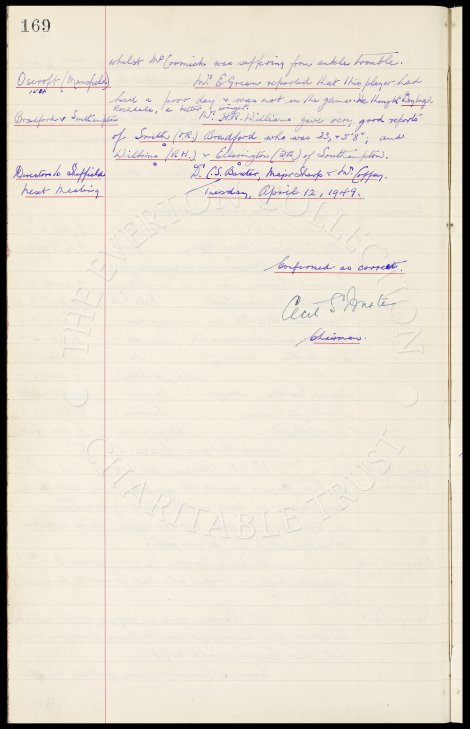 169
whilst McCormick was suffering from ankle trouble.
Oscroft (Mansfield) Mr. E. Green reported that this player had
had a poor day & was not in the game. He thought
Rochdale, a better winger.
Bradford & Southampton Mr. H.R. Williams gave very good reports
of Smith (F.R.) Bradford who was 23, & 5'8"; and
Wilkins (R.H.) & Ellerington (R.B.) of Southampton.
Directors to Sheffield Dr. C.S. Baxter, Major Sharp & Mr. Coffey.
Next Meeting Tuesday, April 12, 1949.
Confirmed as correct.
Cecil S Baxter
Chairman.
THE EVERTON COLLECTION
CHARITABLE TRUST